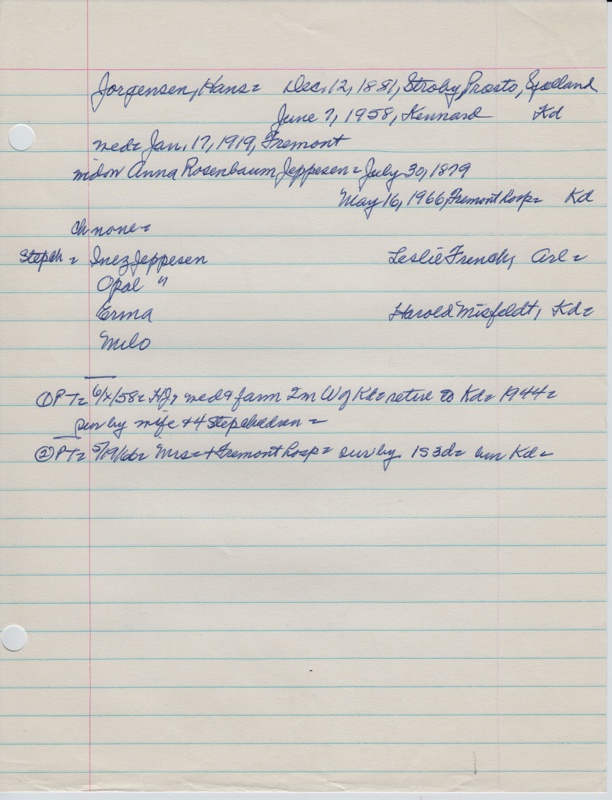 Jorgensen, Hans= Dec, 12, 1881, Stroby, Prasto, Sjalland
June 7, 1958, Kennard Kd
wed= Jan, 17, 1919, Fremont
widow Anna Rosenbaum Jeppesen= July 30, 1879
May 16, 1966, Fremont hosp= Kd
ch none=
Stepch = Inez Jeppesen Leslie French, Arl=
Opal "
Erma Harold Misfeldt, Kd=
Milo
① PT= 58= HJ, wed & farm 2m W of Kd= retire to Kd= 1944=
sur by wife + 4 Stepchildren=
② PT= 5/19/66= Mrs= + Fremont hosp= sur by 1S 3d= bur Kd=